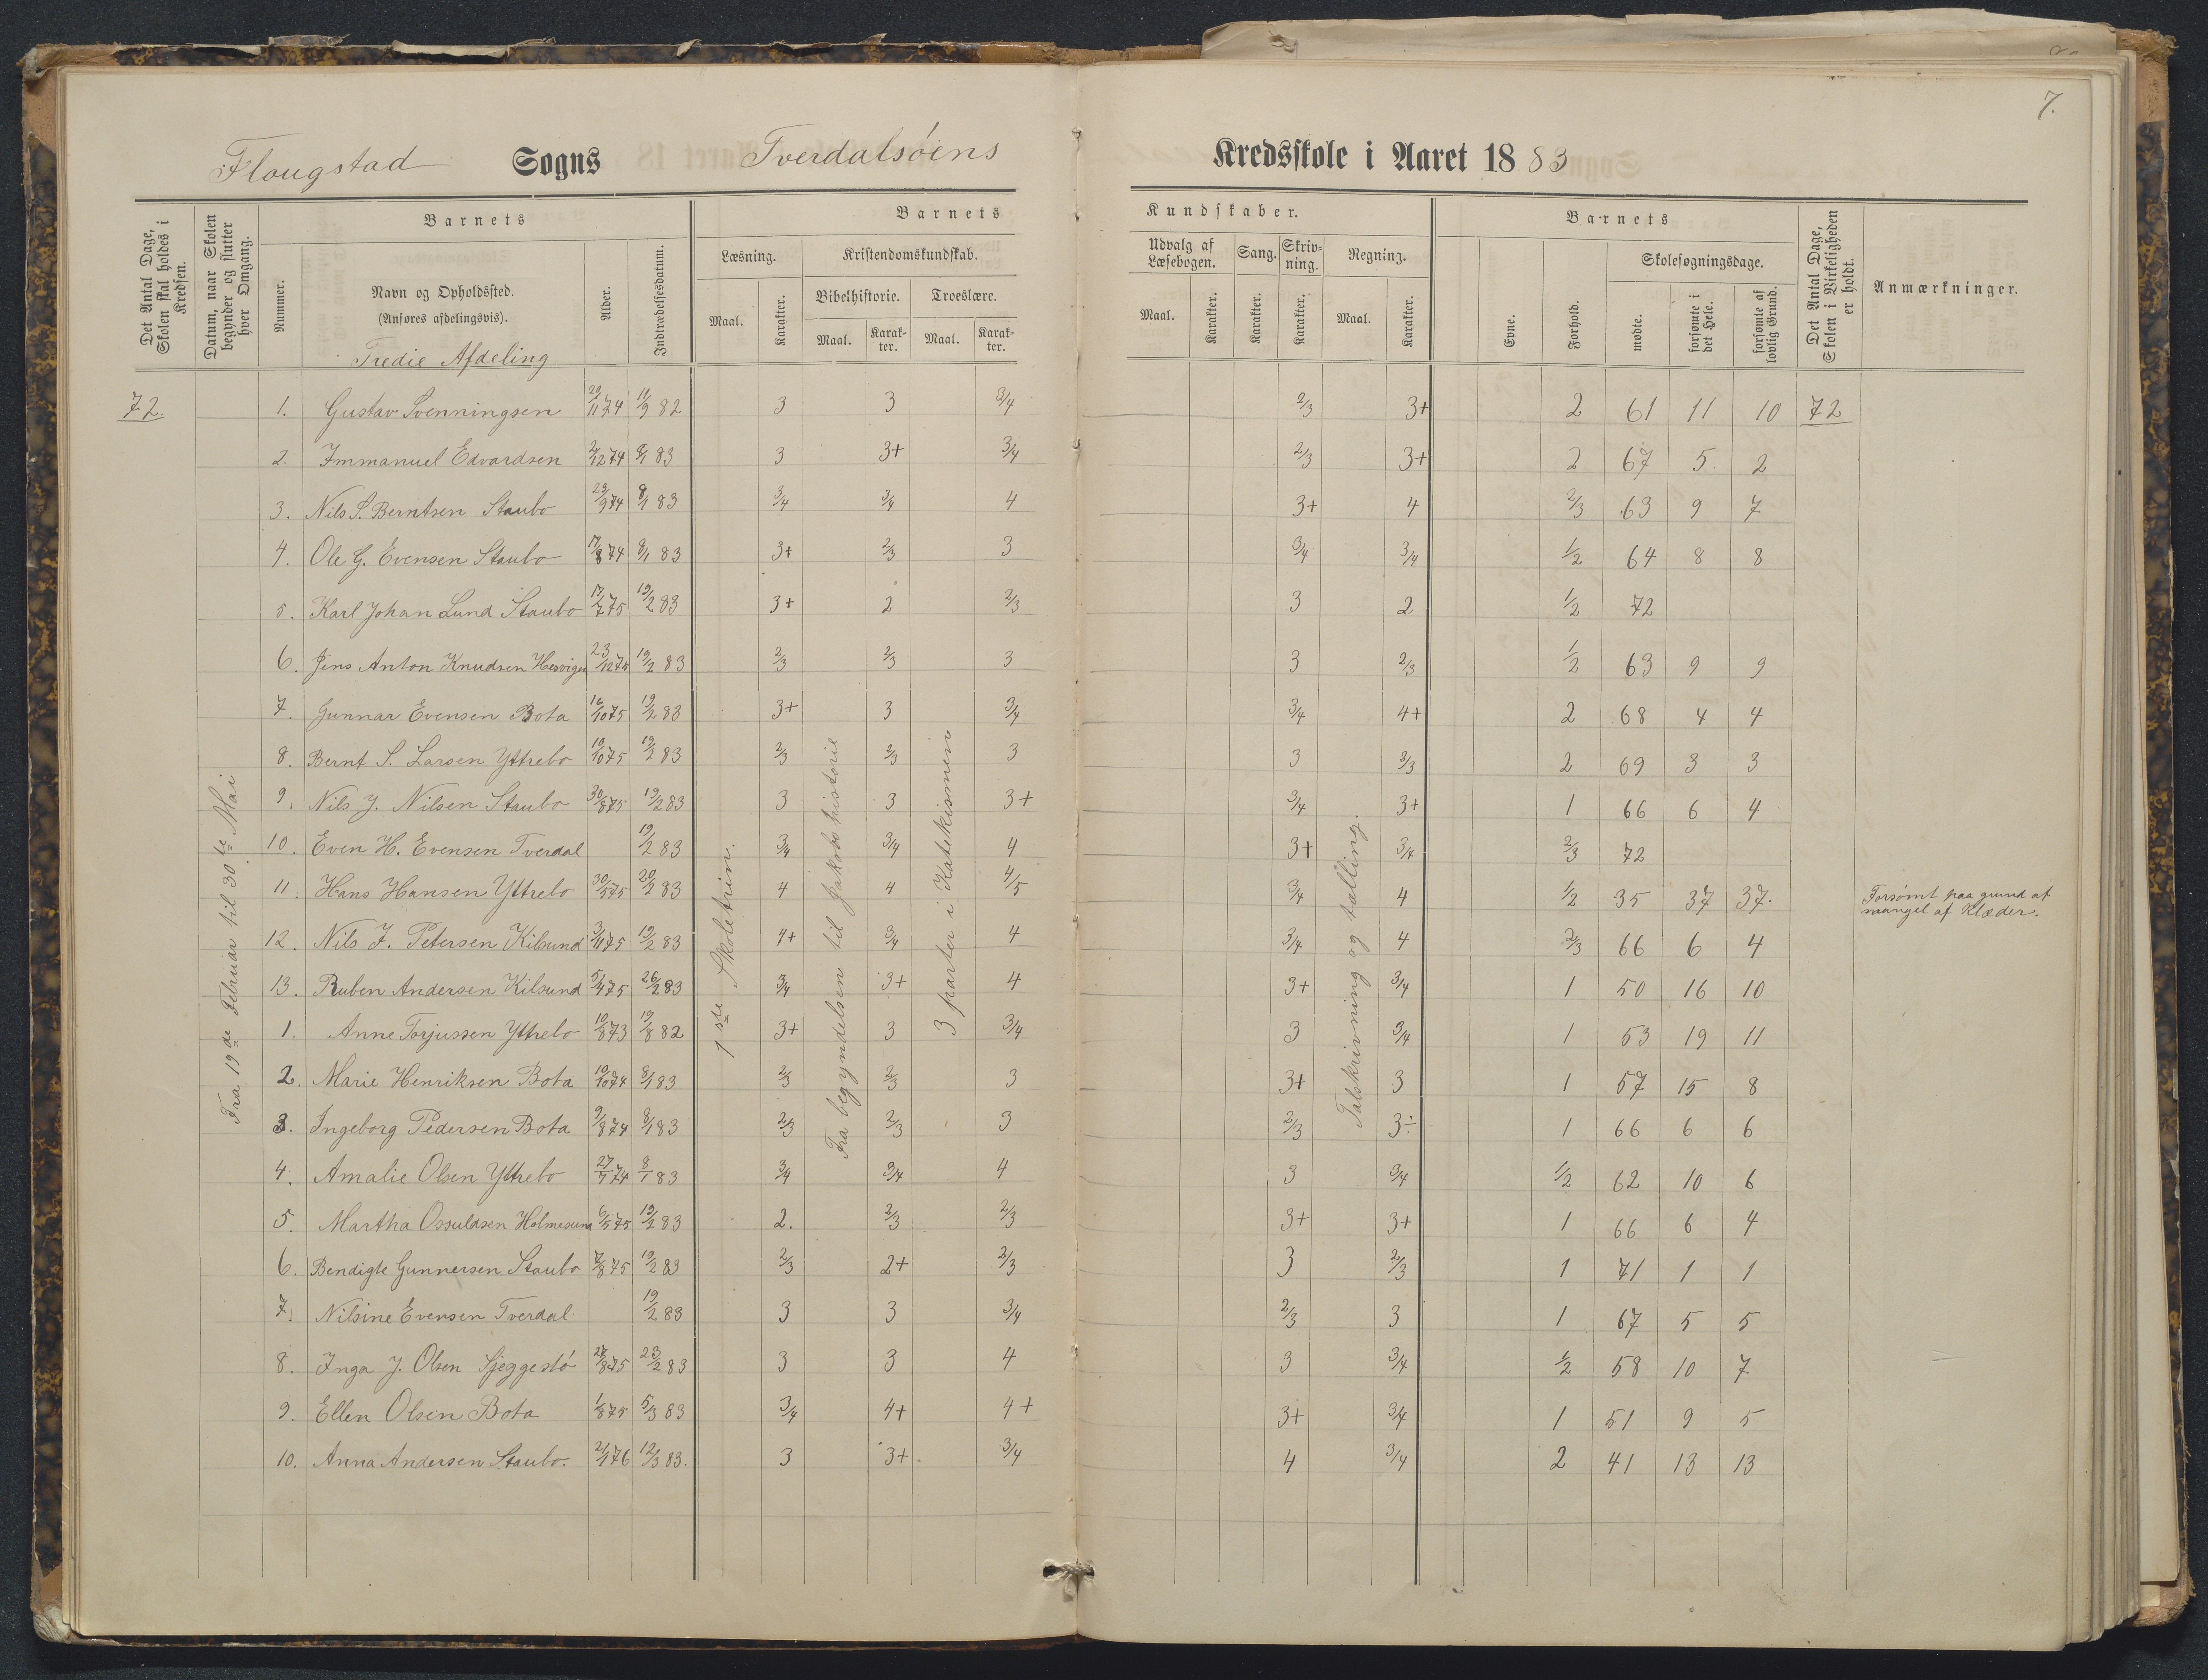 7.
Flougstad Sogns Tverdalsöens Kredsskole i Aaret 1883
Det Antal Dage, Skolen skal holdes i Kredsen.
Datum, naar Skolen begynder og slutter hver Omgang.
Barnets
Nummer.
Navn og Opholdssted.
(Anføres afdelingsvis).
Tredie Afdeling
Alder.
Indtrædelsesdatum.
Barnets Kundskaber.
Læsning.
Maal. Karakter.
Kristendomskundskab.
Bibelhistorie. Troeslære.
Maal. Karakter. Maal. Karakter.
Udvalg af Læsebogen.
Maal. Karakter.
Sang.
Karakter.
Skrivning.
Karakter.
Regning.
Maal. Karakter.
Barnets
Evne.
Forhold.
Skolesøgningsdage.
mødte.
forsømte i det Hele.
forsømte af lovlig Grund.
Det Antal Dage, Skolen i Virkeligheden er holdt.
Anmærkninger.
Fra 19de Februar til 30te Mai
1ste Skoletrin.
Fra begyndelsen til Jakobs historie
3 parter i Katekismen
Talskrivning og tælling.
72. 1. Gustav Svenningsen 29/11 74 11/9 82 3 3 3/4 2/3 3+ 2 61 11 10 72
2. Immanuel Edvardsen 2/12 74 8/1 83 3 3+ 3/4 2/3 3+ 2 67 5. 2
3. Nils S. Berntsen Staubo 23/9 74 8/1 83 3/4 3/4 4 3+ 4 2/3 63 9 7
4. Ole G. Evensen Staubo 17/8 74 8/1 83 3+ 2/3 3 3/4 3/4 1/2 64 8 8
5. Karl Johan Lund Staubo 17/7 75 19/2 83 3+ 2 2/3 3 2 1/2 72
6. Jens Anton Knudsen 23/12 75 19/2 83 2/3 2/3 3 3 2/3 1/2 63 9 9
7. Gunnar Evensen Bota 16/10 75 19/2 83 3+ 3 3/4 3/4 4+ 2 68 4 4
8. Bernt S. Larsen Yttrebo 10/10 75 19/2 83 2/3 2/3 3 3 2/3 2 69 3 3
9. Nils J. Nilsen Staubo 30/8 75 19/2 83 3 3 3+ 3/4 3+ 1 66 6 4
10. Even H. Evensen Tverdal 19/2 83 3/4 3/4 4 3+ 3/4 2/3 72
11. Hans Hansen Yttrebo 30/5 75 20/2 83 4 4 4/5 3/4 4 1/2 35 37 37. Forsømt paa grund af
mangel af Klæder.
12. Nils F. Petersen Kilsund 3/11 75 19/2 83 4+ 3/4 4 3/4 4 2/3 66 6 4
13. Ruben Andersen Kilsund 5/4 75 26/2 83 3/4 3+ 4 3+ 3/4 1 50 16 10
1. Anne Torjussen Yttrebo 10/8 73 19/8 82 3+ 3 3/4 3 3/4 1 53 19 11
2. Marie Henriksen Bota 10/10 74 8/1 83 2/3 2/3 3 3+ 3 1 57 15 8
3. Ingeborg Pedersen Bota 9/8 74 8/1 83 2/3 2/3 3 2/3 3÷ 1 66 6 6
4. Amalie Olsen Yttrebo 27/7 74 8/1 83 3/4 3/4 4 3 3/4 1/2 62 10 6
5. Martha Osuldsen Holmesund 6/5 75 19/2 83 2. 2/3 2/3 3+ 3+ 1 66 6 4
6. Bendigte Gunnersen Staubo 7/8 75 19/2 83 2/3 2+ 2/3 3 2/3 1 71 1 1
7. Nilsine Evensen Tverdal 19/2 83 3 3 3/4 2/3 3 1 67 5 5
8. Inga J. Olsen Sjeggestö 28/8 75 23/2 83 3 3 4 3 3/4 1/2 58 10 7
9. Ellen Olsen Bota 1/8 75 5/3 83 3/4 4+ 4+ 3+ 3/4 1 51 9 5
10. Anna Andersen Staubo. 21/1 76 12/3 83. 3 3+. 3/4 4 3/4 2 41 13 13